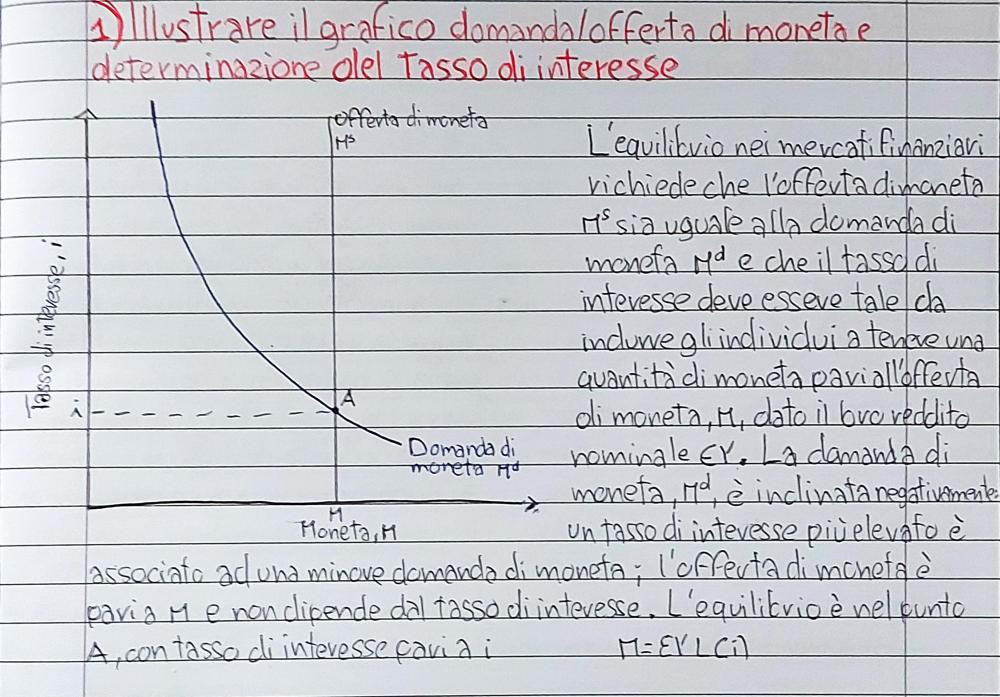 1) Illustrare il grafico domanda/offerta di moneta e
determinazione del tasso di interesse
Offerta di moneta
Mˢ
Tasso di interesse, i
i
A
Domanda di
moneta Mᵈ
M
Moneta, M
L'equilibrio nei mercati finanziari
richiede che l'offerta di moneta
Mˢ sia uguale alla domanda di
moneta Mᵈ e che il tasso di
interesse deve essere tale da
indurre gli individui a tenere una
quantità di moneta pari all'offerta
di moneta, M, dato il loro reddito
nominale €Y. La domanda di
moneta, Mᵈ, è inclinata negativamente:
un tasso di interesse più elevato è
associato ad una minore domanda di moneta; l'offerta di moneta è
pari a M e non dipende dal tasso di interesse. L'equilibrio è nel punto
A, con tasso di interesse pari a i M=€Y L(i)